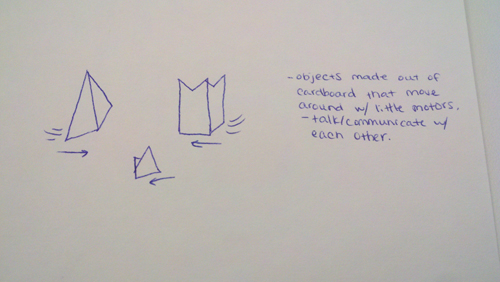 -objects made out of
cardboard that move
around w/ little motors.
- talk/communicate w/
each other.